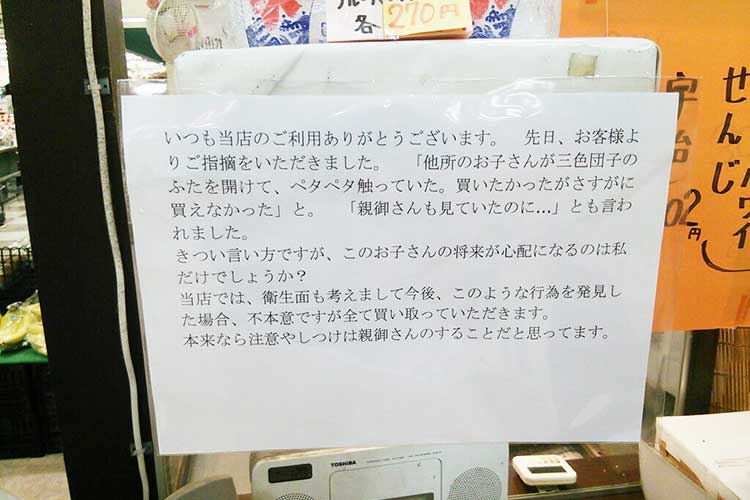 各 270円
いつも当店のご利用ありがとうございます。　先日、お客様よ
りご指摘をいただきました。　「他所のお子さんが三色団子の
ふたを開けて、ペタペタ触っていた。買いたかったがさすがに
買えなかった」と。　「親御さんも見ていたのに…」とも言わ
れました。
きつい言い方ですが、このお子さんの将来が心配になるのは私
だけでしょうか？
当店では、衛生面も考えまして今後、このような行為を発見し
た場合、不本意ですが全て買い取っていただきます。
本来なら注意やしつけは親御さんのすることだと思ってます。
せんじ
ハワイ
宇治
02円
TOSHIBA